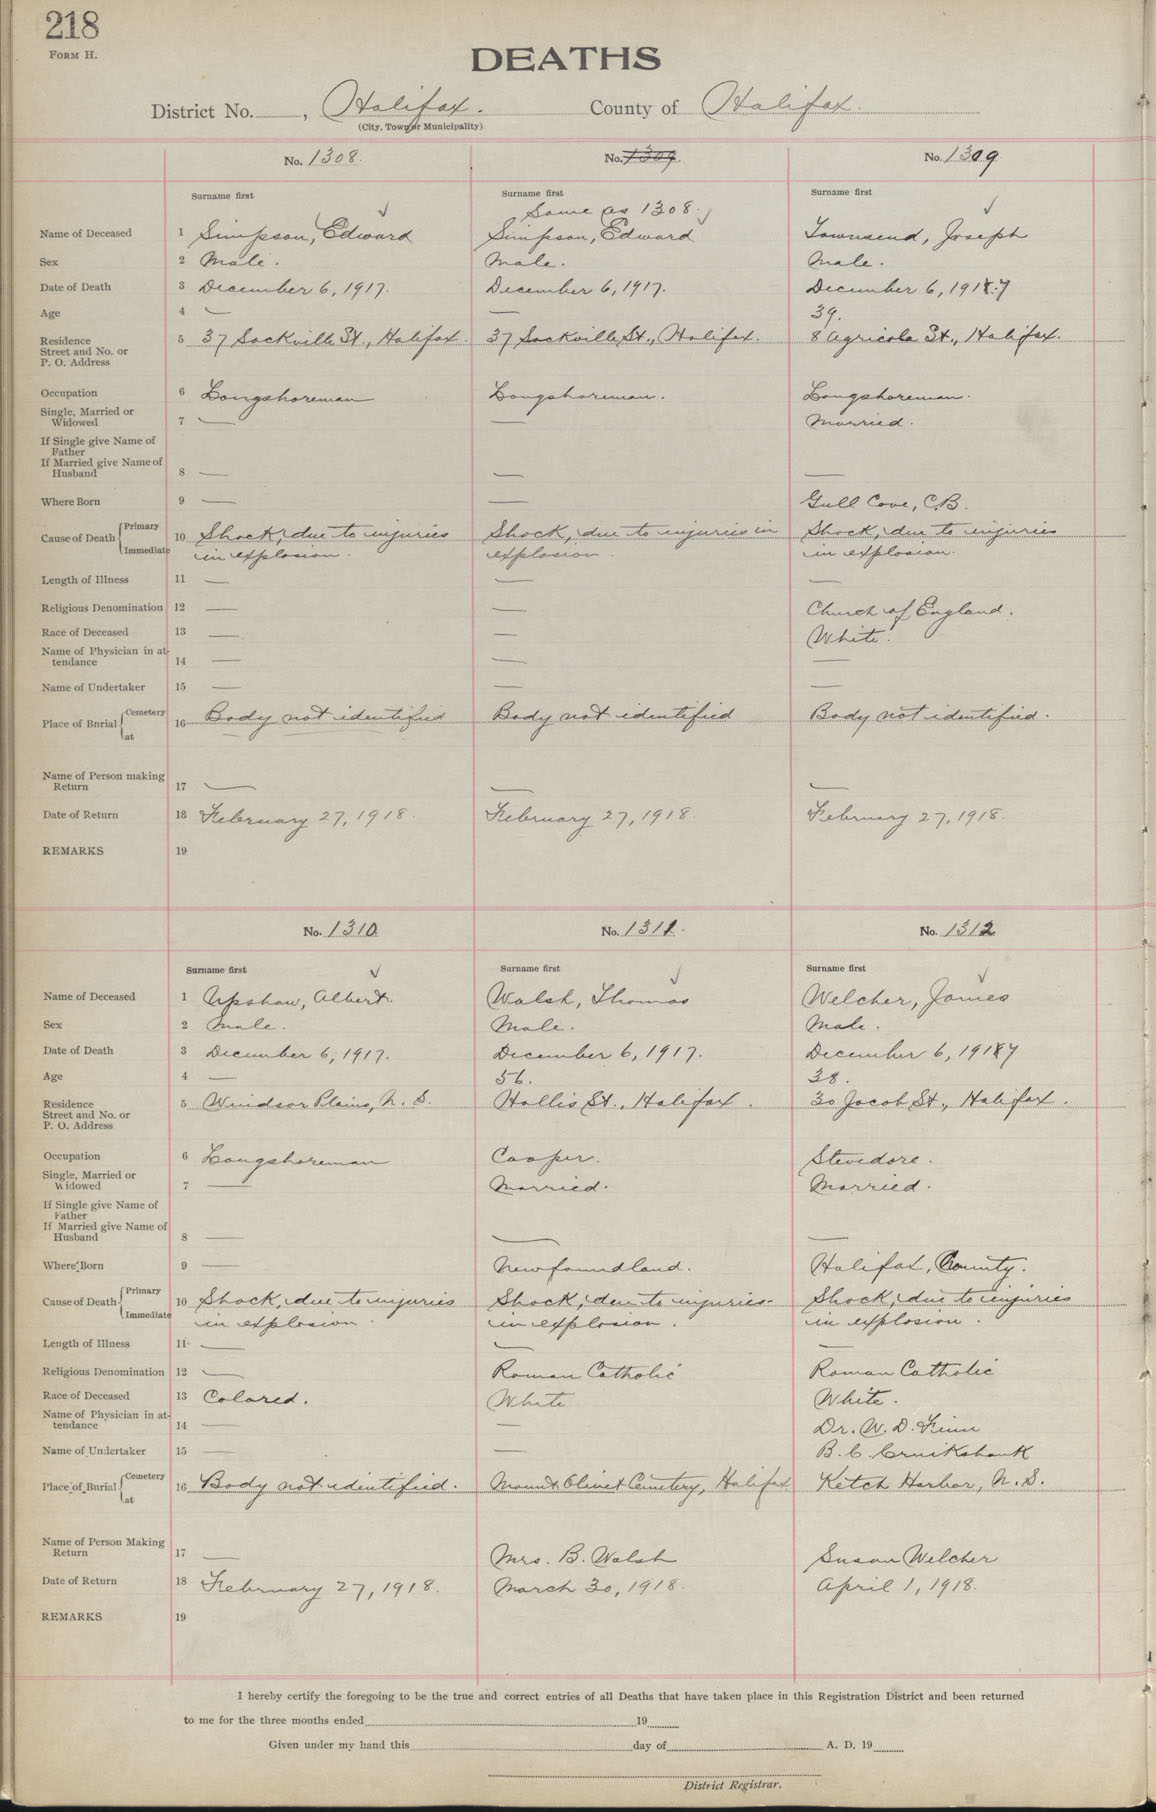 218
FORM H.
DEATHS
District No. , Halifax. County of Halifax.
(City, Town or Municipality)
No. 1308. No. 1309 No. 1309
Surname first Surname first Surname first
Same as 1308.
Name of Deceased 1 Simpson, Edward Simpson, Edward Townsend, Joseph
Sex 2 Male. Male. Male.
Date of Death 3 December 6, 1917. December 6, 1917. December 6, 1917
Age 4 — — 39.
Residence 5 37 Sackville St., Halifax. 37 Sackville St., Halifax. 8 Agricola St., Halifax.
Street and No. or
P. O. Address
Occupation 6 Longshoreman Longshoreman. Longshoreman.
Single, Married or
Widowed 7 — — Married.
If Single give Name of
Father
If Married give Name of
Husband 8 — — —
Where Born 9 — — Gull Cove, C.B.
Primary
Cause of Death 10 Shock, due to injuries Shock, due to injuries in Shock, due to injuries
Immediate in explosion. explosion. in explosion.
Length of Illness 11 — — —
Religious Denomination 12 — — Church of England.
Race of Deceased 13 — — White.
Name of Physician in at-
tendance 14 — — —
Name of Undertaker 15 — — —
Cemetery
Place of Burial 16 Body not identified Body not identified Body not identified.
at
Name of Person making
Return 17 — — —
Date of Return 18 February 27, 1918. February 27, 1918. February 27, 1918.
REMARKS 19
No. 1310 No. 1311. No. 1312
Surname first Surname first Surname first
Name of Deceased 1 Upshaw, Albert. Walsh, Thomas Welcher, James
Sex 2 Male. Male. Male.
Date of Death 3 December 6, 1917. December 6, 1917. December 6, 1917
Age 4 — 56. 38.
Residence 5 Windsor Plains, N. S. Hollis St., Halifax. 30 Jacob St., Halifax.
Street and No. or
P. O. Address
Occupation 6 Longshoreman Cooper. Stevedore.
Single, Married or
Widowed 7 — Married. Married.
If Single give Name of
Father
If Married give Name of
Husband 8 — — —
Where Born 9 — Newfoundland. Halifax, County.
Primary
Cause of Death 10 Shock, due to injuries Shock, due to injuries- Shock, due to injuries
Immediate in explosion. in explosion. in explosion.
Length of Illness 11 — — —
Religious Denomination 12 — Roman Catholic Roman Catholic
Race of Deceased 13 Colored. White White.
Name of Physician in at-
tendance 14 — — Dr. W. D. Finn
Name of Undertaker 15 — — B. C. Cruikshank
Cemetery
Place of Burial 16 Body not identified. Mount Olivet Cemetery, Halifax Ketch Harbor, N. S.
at
Name of Person Making
Return 17 — Mrs. B. Walsh Susan Welcher
Date of Return 18 February 27, 1918. March 30, 1918. April 1, 1918.
REMARKS 19
I hereby certify the foregoing to be the true and correct entries of all Deaths that have taken place in this Registration District and been returned
to me for the three months ended 19
Given under my hand this day of A. D. 19
District Registrar.